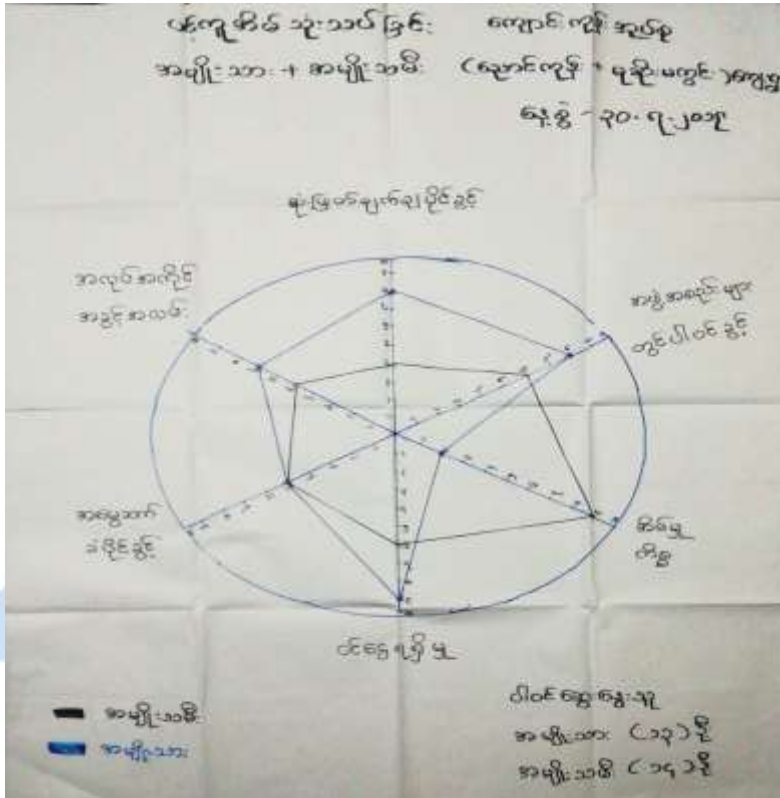 ပင့်ကူအိမ် သုံးသပ်ခြင်း ကျောင်းကုန်းအုပ်စု
အမျိုးသား + အမျိုးသမီး (ညောင်ကုန်း +
နေ့စွဲ - ၃၀.၇.၂၀၁၉
ဆုံးဖြတ်ချက်ချပိုင်ခွင့်
အလုပ်အကိုင်
အခွင့်အလမ်း
အဖွဲ့အစည်းများ
တွင်ပါဝင်ခွင့်
အမွေဆက်
ခံပိုင်ခွင့်
အိမ်မှု
ကိစ္စ
ဝင်ငွေရရှိမှု
အမျိုးသမီး
အမျိုးသား
ပါဝင်ဆွေးနွေးသူ
အမျိုးသား (၁၃) ဦး
အမျိုးသမီး (၁၄) ဦး